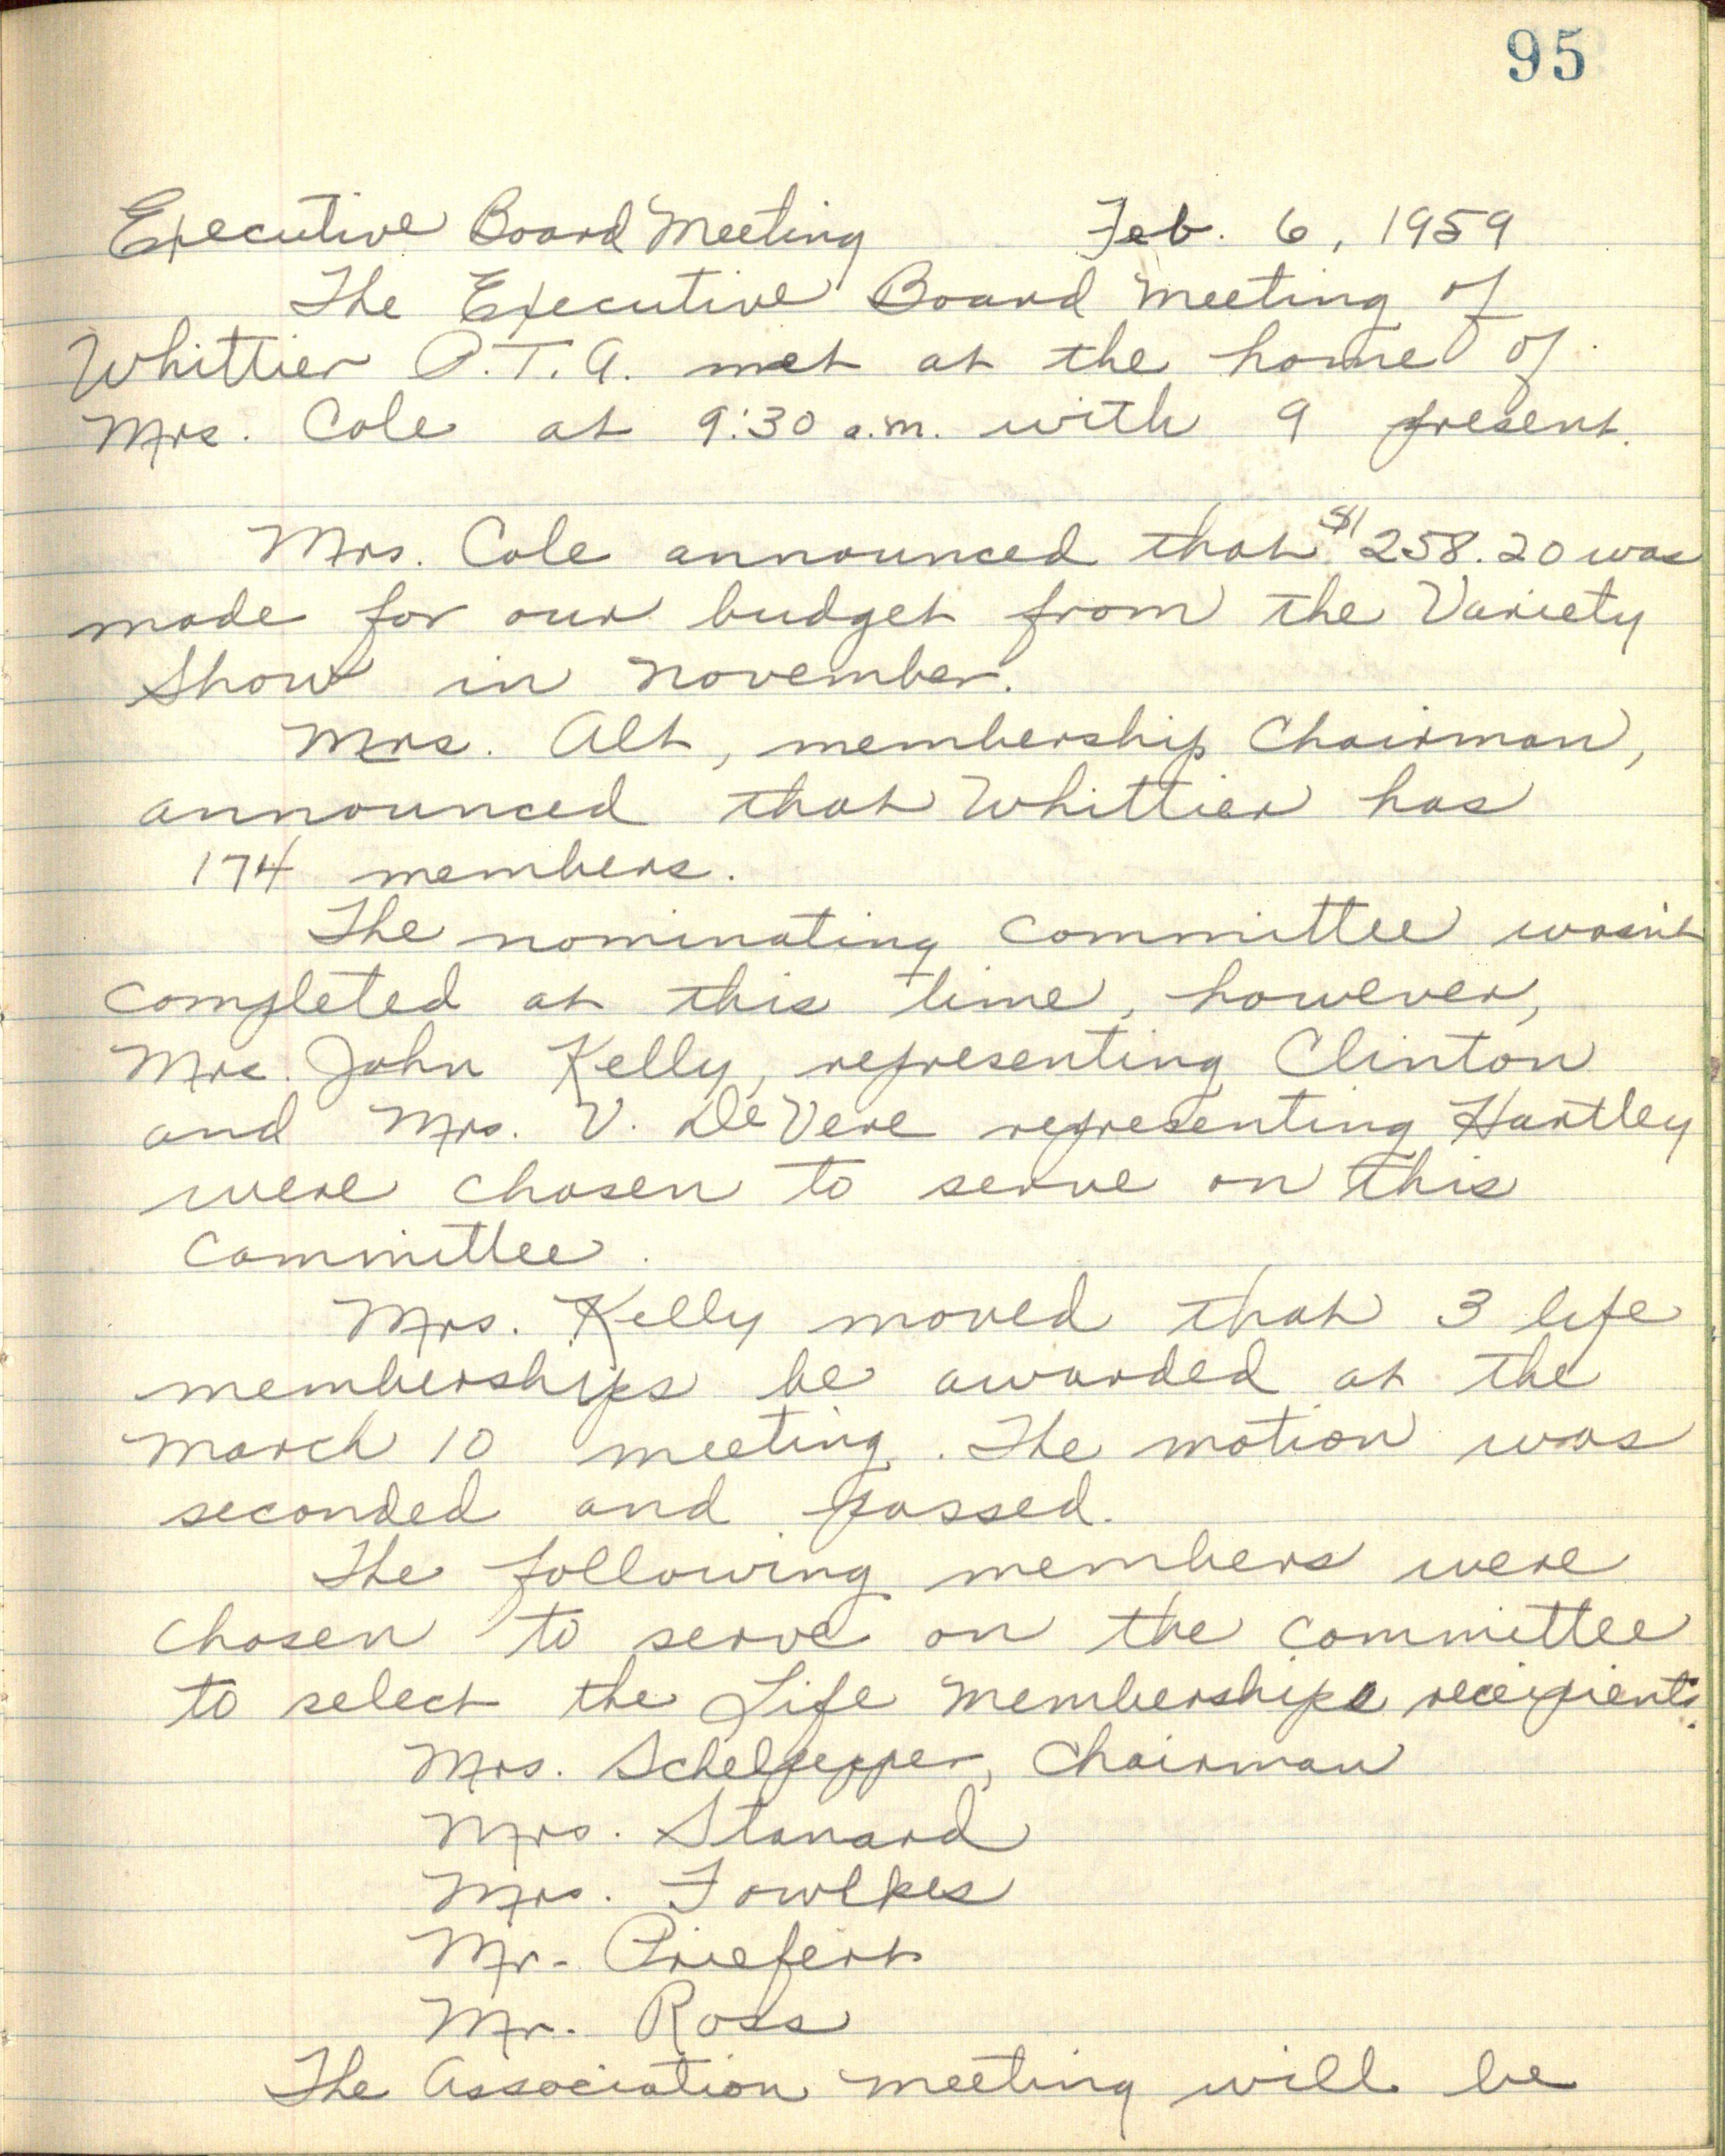 95
Executive Board Meeting Feb. 6, 1959
The Executive Board Meeting of
Whittier P.T.A. met at the home of
Mrs. Cole at 9:30 a.m. with 9 present.
Mrs. Cole announced that $258.20 was
made for our budget from the Variety
Show in November.
Mrs. Alt, membership Chairman,
announced that Whittier has
174 members.
The nominating committee wasn't
completed at this time, however,
Mrs. John Kelly, representing Clinton
and Mrs. V. DeVere representing Hartley
were chosen to serve on this
committee.
Mrs. Kelly moved that 3 life
memberships be awarded at the
March 10 meeting. The motion was
seconded and passed.
The following members were
chosen to serve on the committee
to select the Life Memberships recipients.
Mrs. Schelpepper, Chairman
Mrs. Stanard
Mrs. Fowlkes
Mr. Priefert
Mr. Ross
The Association meeting will be